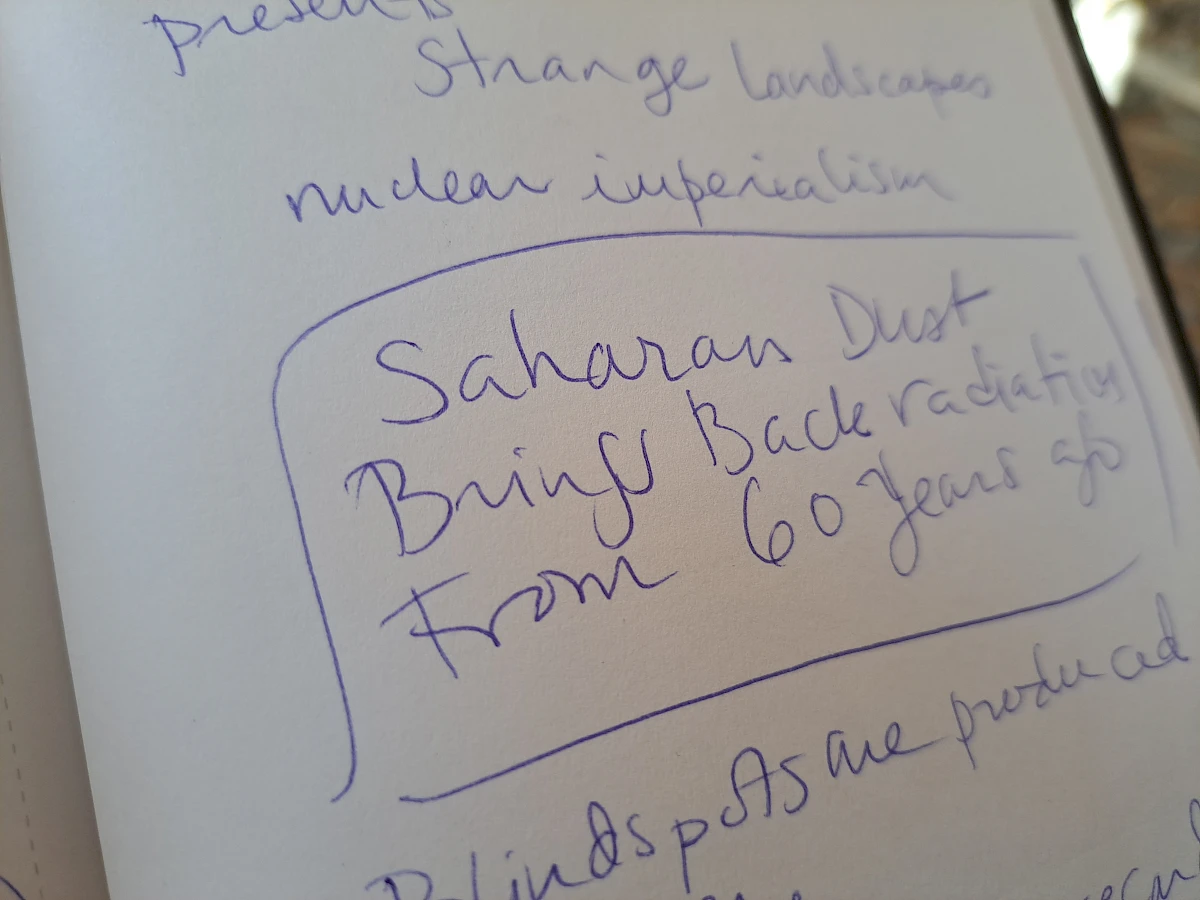 presents
Strange landscapes
nuclear imperialism
Saharan Dust
Brings Back radiation
From 60 Years ago
Blindspots are produced